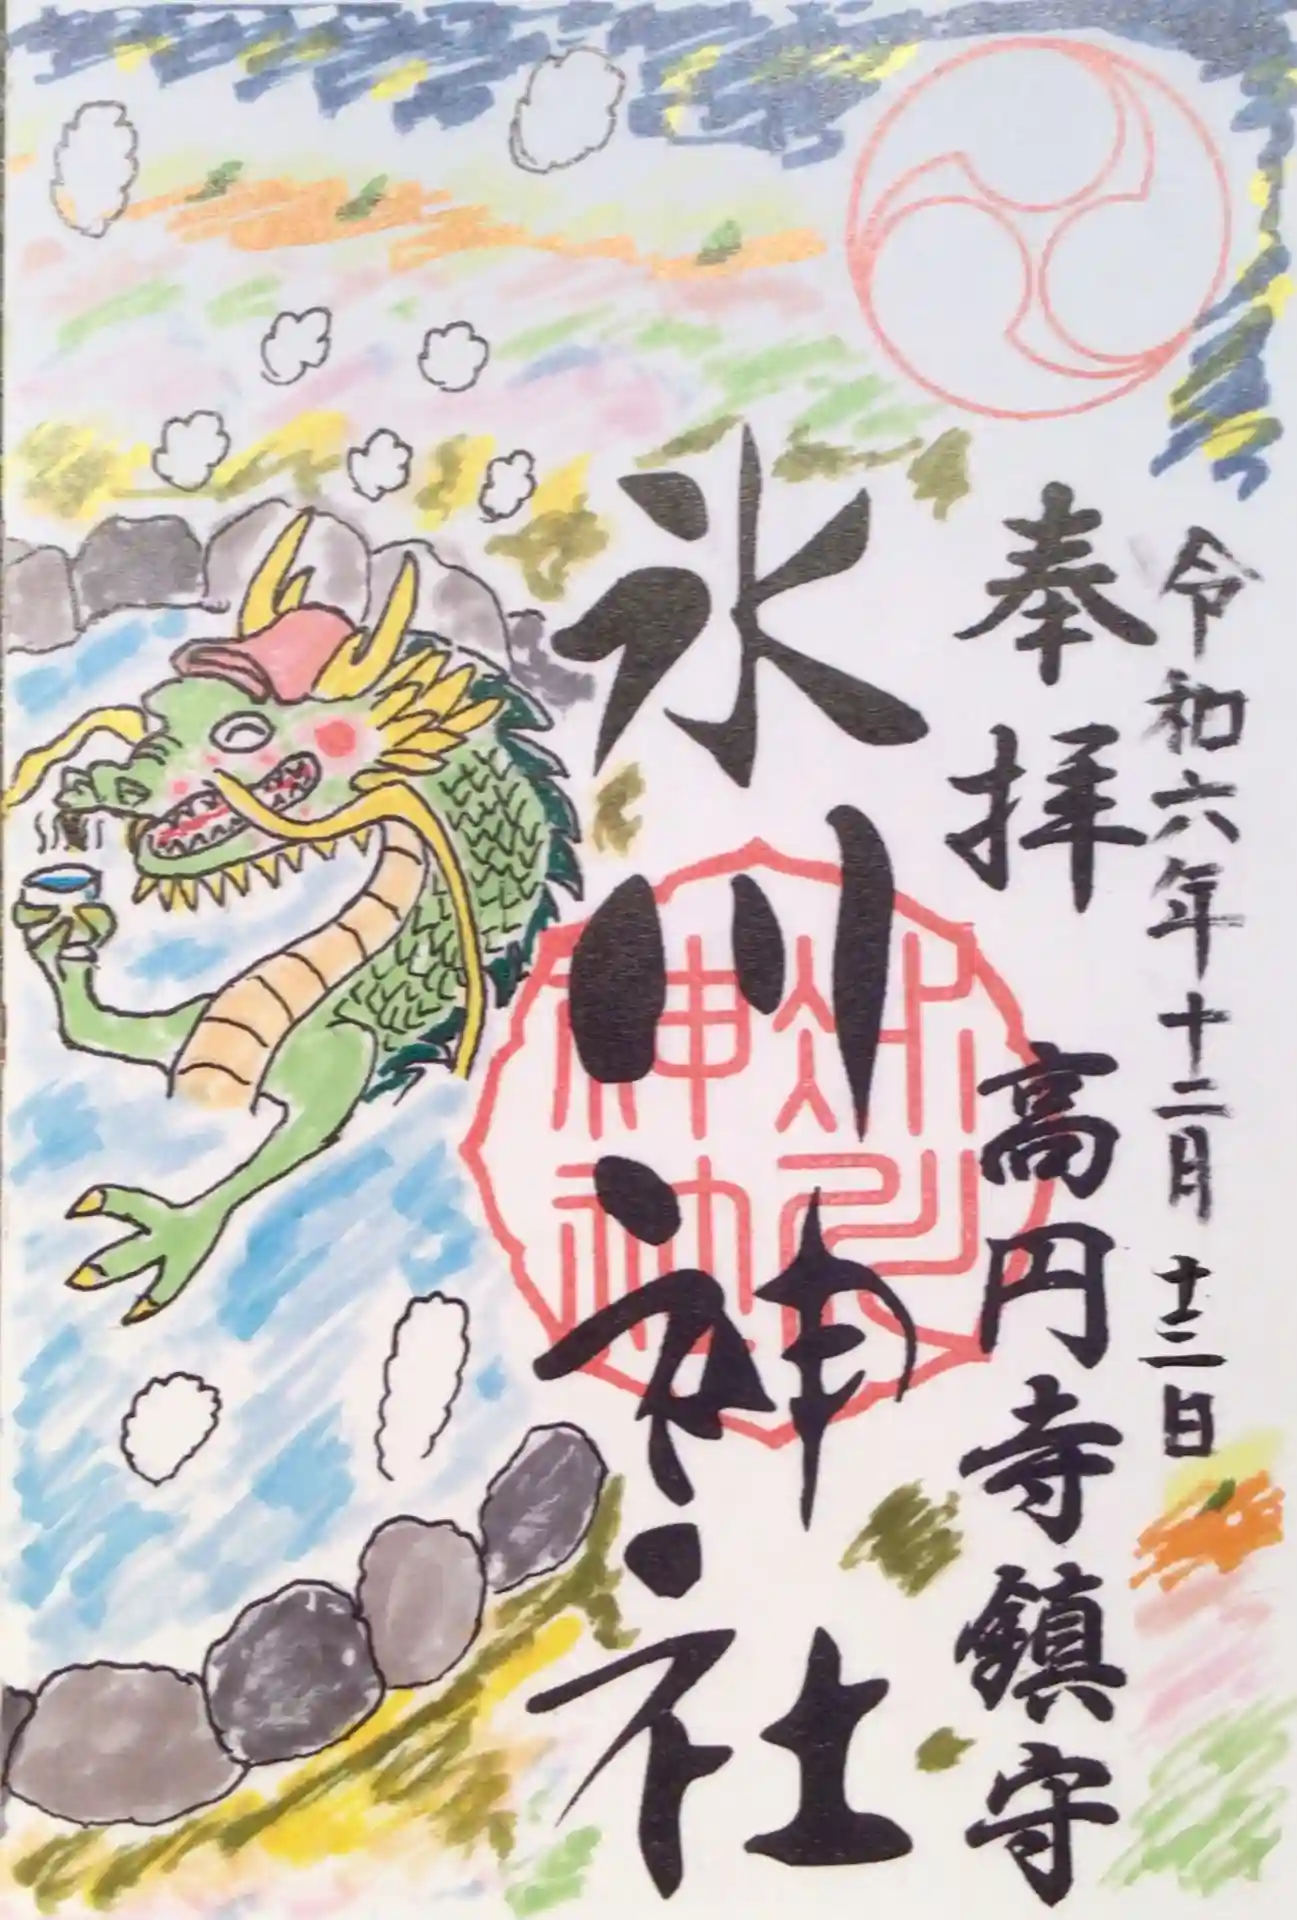 令和六年十二月十二日
奉拝 高円寺鎮守
氷川神社
氷川
神社